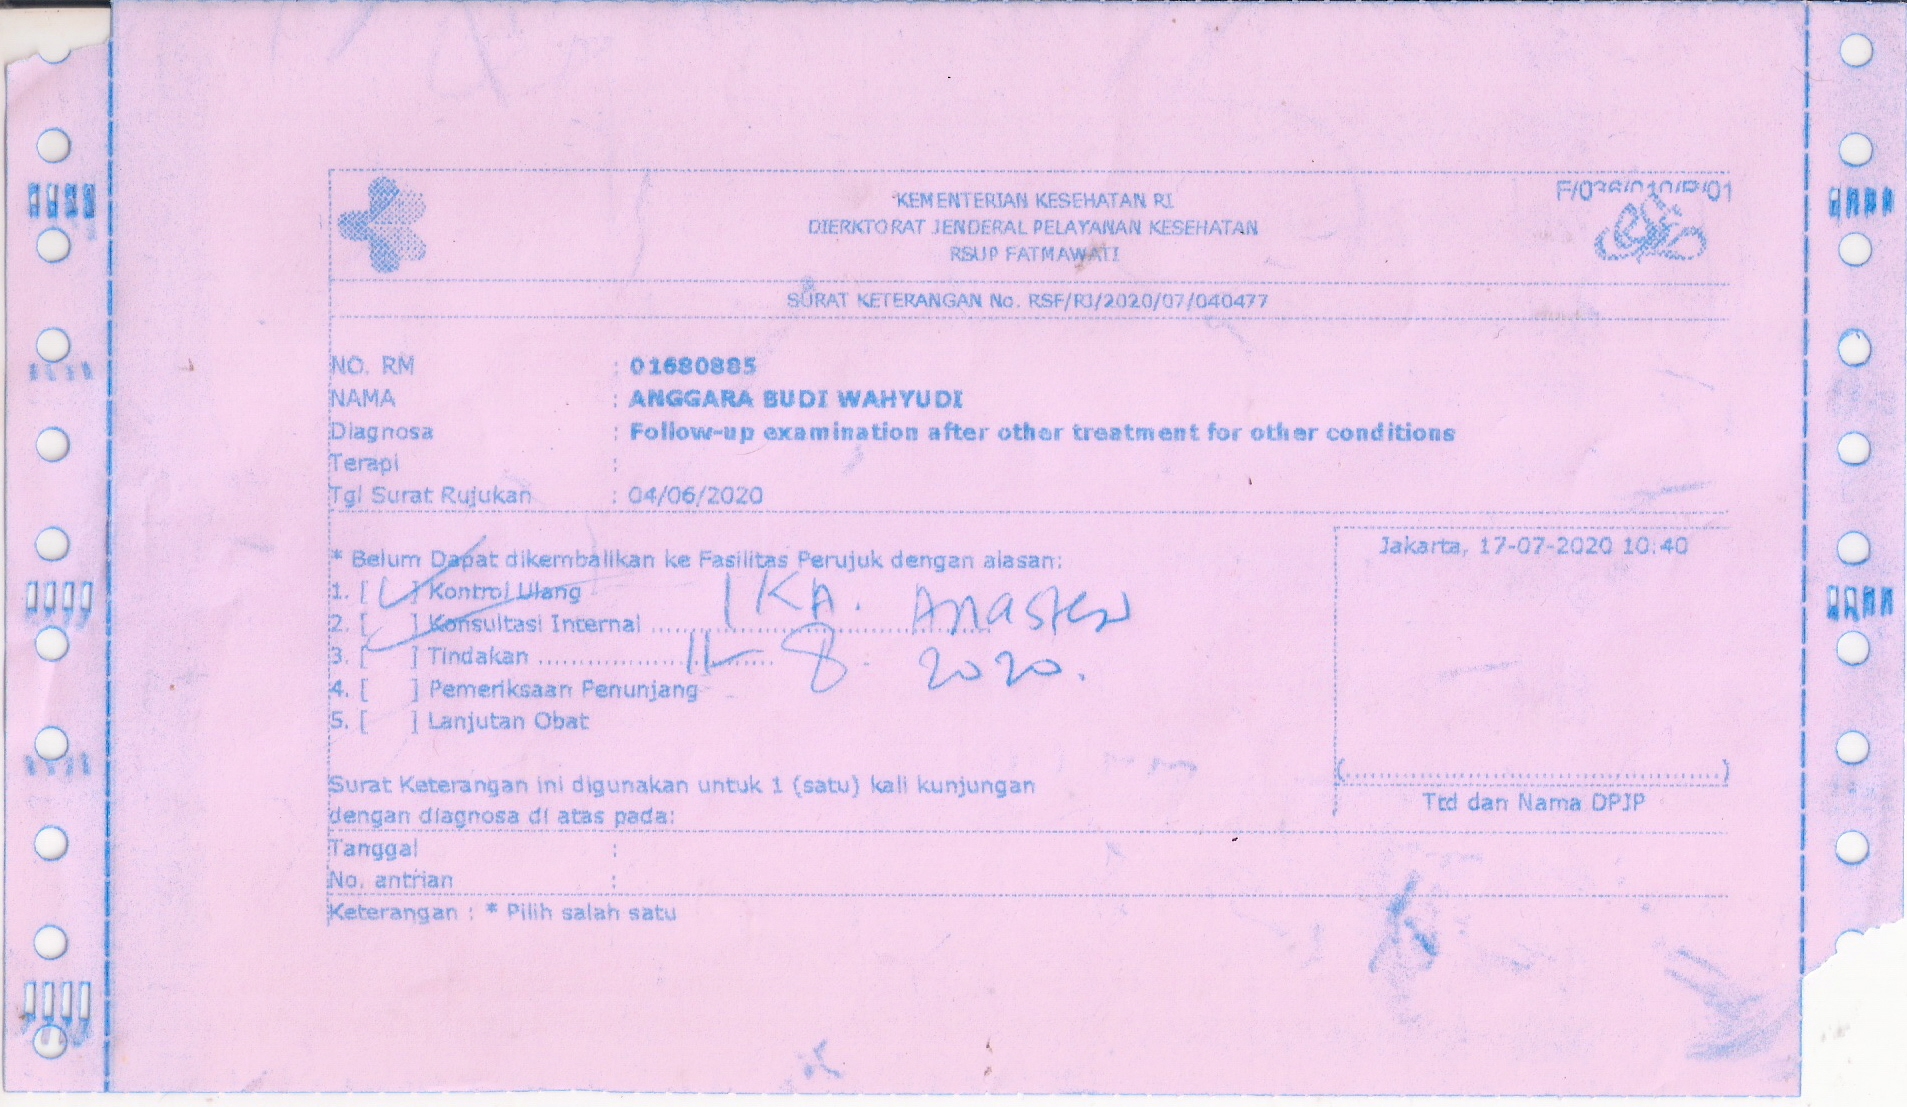 KEMENTERIAN KESEHATAN RI
DIERKTORAT JENDERAL PELAYANAN KESEHATAN
RSUP FATMAWATI
SURAT KETERANGAN No. RSF/RJ/2020/07/040477
NO. RM : 01680885
NAMA : ANGGARA BUDI WAHYUDI
Diagnosa : Follow-up examination after other treatment for other conditions
Terapi :
Tgl Surat Rujukan : 04/06/2020
* Belum Dapat dikembalikan ke Fasilitas Perujuk dengan alasan:
Jakarta, 17-07-2020 10:40
1. [ ✓ ] Kontrol Ulang
2. [ ✓ ] Konsultasi Internal .......... IKA.
3. [ ] Tindakan .......... 11 - 8 - 2020.
4. [ ] Pemeriksaan Penunjang
5. [ ] Lanjutan Obat
(..........................................)
Ttd dan Nama DPJP
Surat Keterangan ini digunakan untuk 1 (satu) kali kunjungan
dengan diagnosa di atas pada:
Tanggal :
No. antrian :
Keterangan : * Pilih salah satu